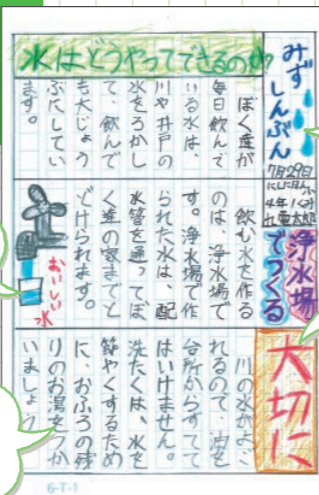 みずしんぶん
7月29日
水はどうやってできるのか?
ぼく達が
毎日飲んで
いる水は、
川や井戸の
水をろかし
て、飲んで
も大じょう
ぶにしてい
ます。
浄水場
でつくる
飲む水を作る
のは、浄水場で
す。浄水場で作
られた水は、配
水管を通ってぼ
く達の家までと
どけられます。
おいしい水
大切に
川の水がよご
れるので、油を
台所からすてて
はいけません。
洗たくは、水を
節やくするため
に、おふろの残
りのお湯をつか
いましょう
6-T-1